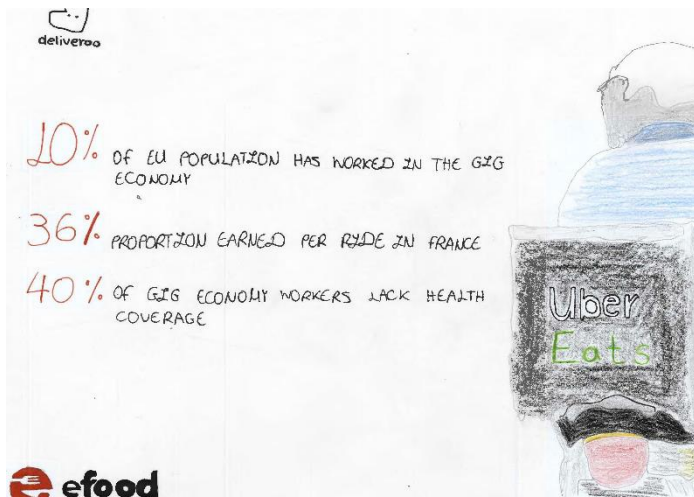 deliveroo
10% OF EU POPULATION HAS WORKED IN THE GIG
ECONOMY
36% PROPORTION EARNED PER RIDE IN FRANCE
40% OF GIG ECONOMY WORKERS LACK HEALTH
COVERAGE
Uber
Eats
efood